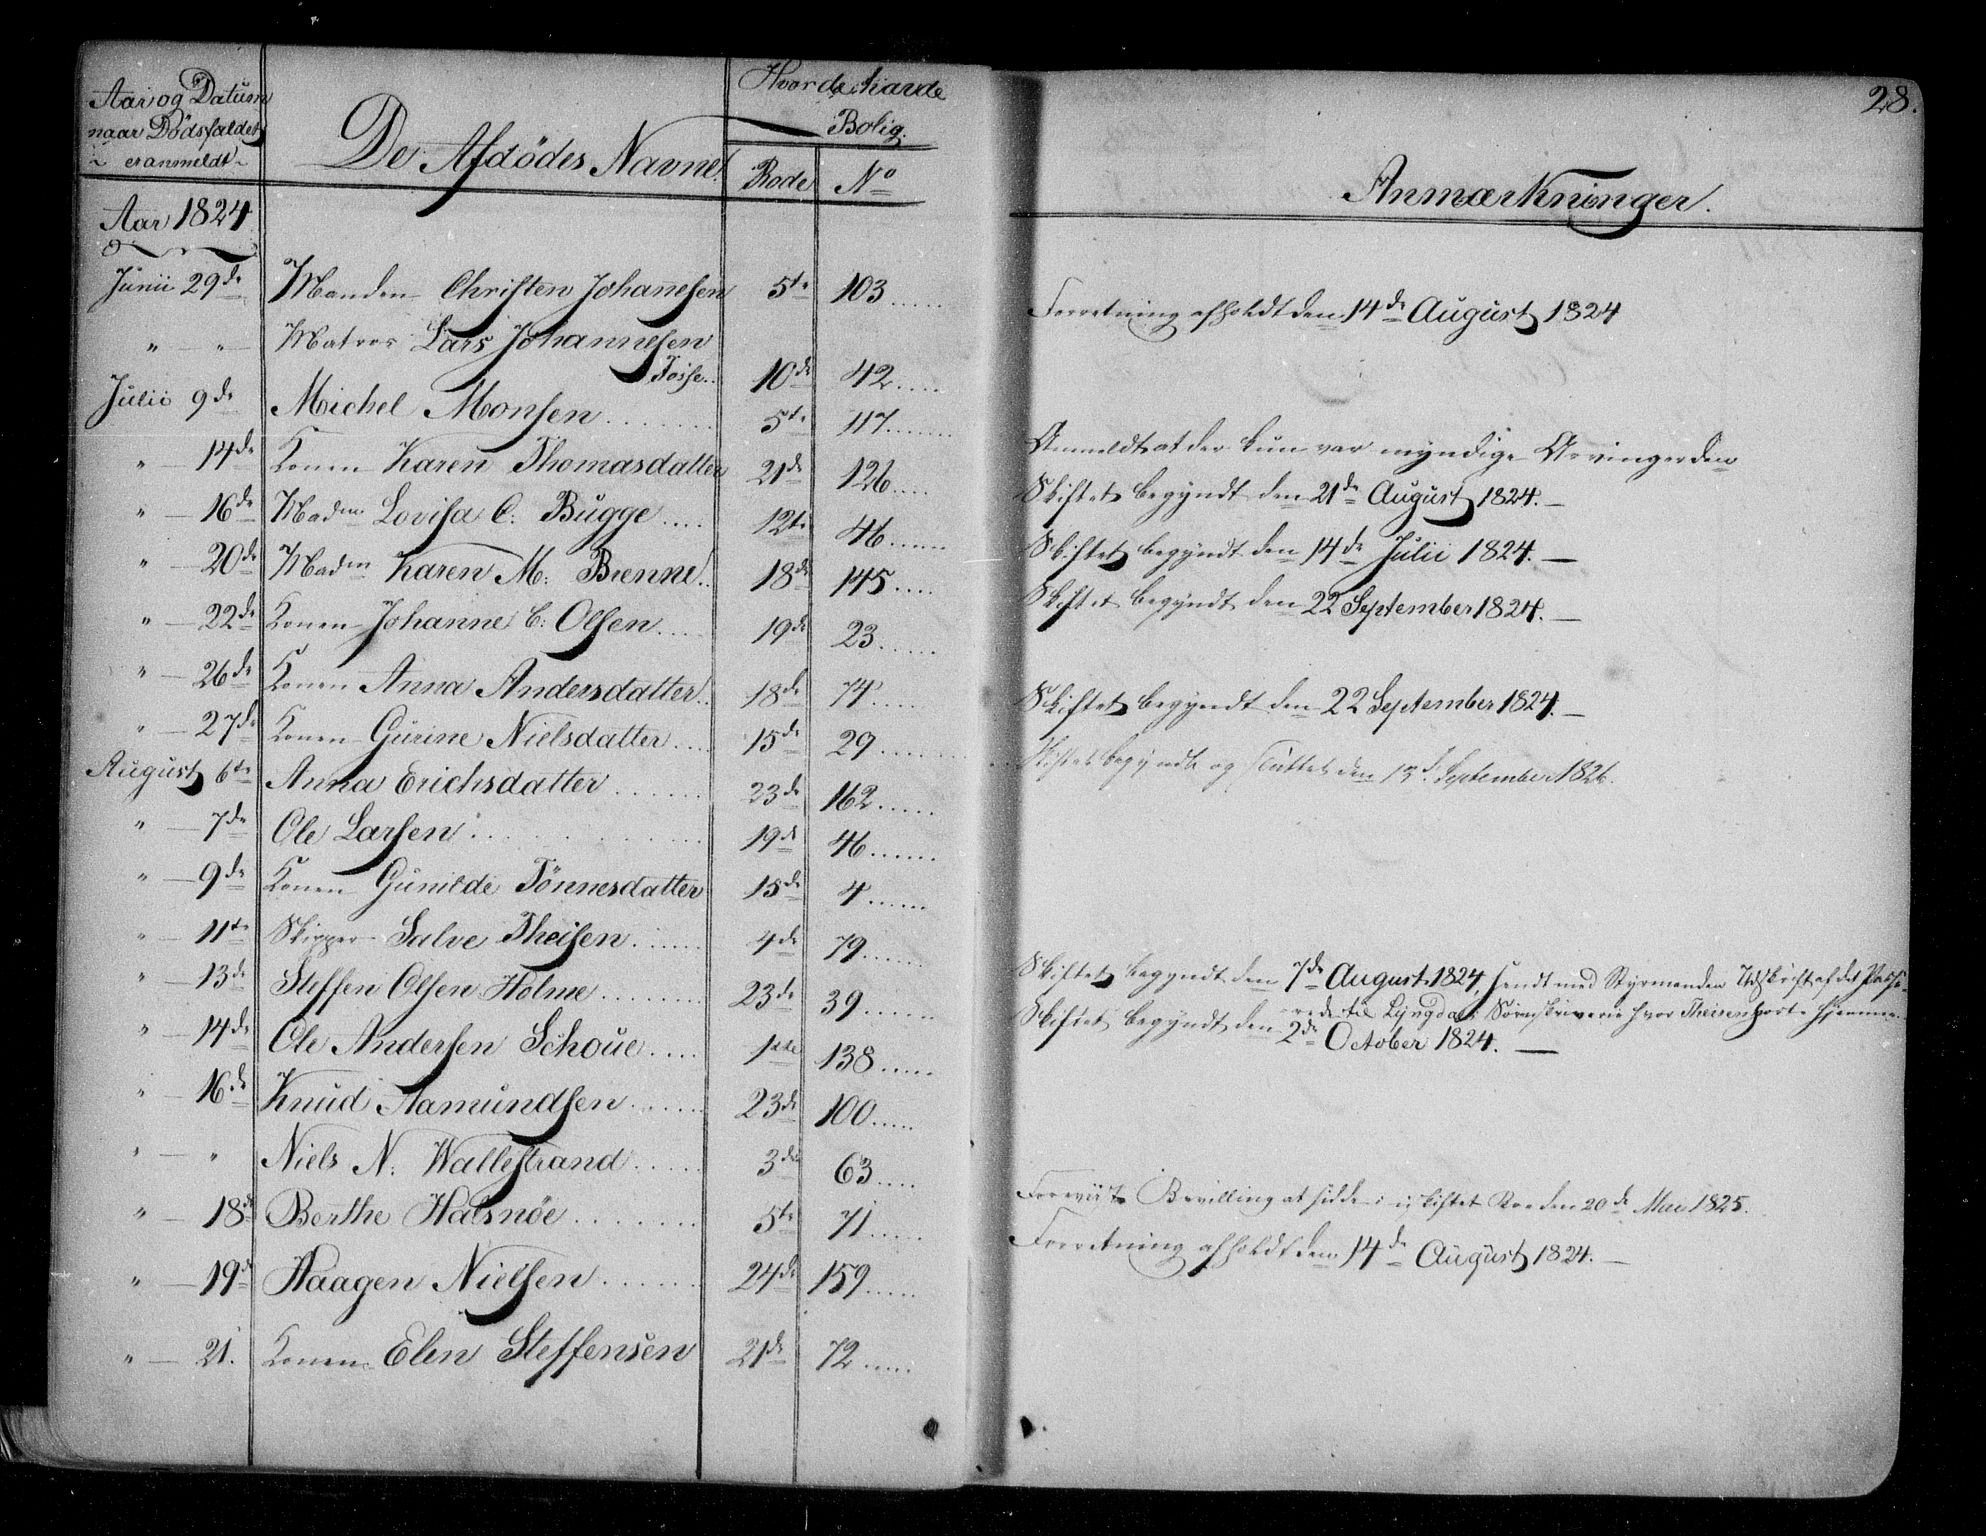 28.
Aar og Datum
naar Dødsfaldet
er anmeldt
De Afdødes Navne.
Hvor de havde
Bolig.
Rode No
Anmærkninger.
Aar 1824
Junii 29de Manden Christen Johanesen 5te 103 Forretning afholdt den 14de August 1824
" — " — Matros Lars Johannesen
Tosse 10de 42
Julii 9de Michel Monsen 5te 117 Anmeldt at der kun var myndige Arvinger den
" — 14de Konen Karen Thomasdatter 21de 126 Skiftet begyndt den 21de August 1824. —
" — 16de Madm Lovisa C: Bugge 12te 46 Skiftet begyndt den 14de Julii 1824. —
" — 20de Madm Karen M: Brenne 18de 145 Skiftet begyndt den 22 September 1824. —
" — 22de Konen Johanne C: Olsen 19de 23
" — 26de Konen Anna Andersdatter 18de 74 Skiftet begyndt den 22 September 1824. —
" — 27de Konen Gurine Nielsdatter 15de 29 Skiftet begyndt og sluttet den 13d. September 1826.
August 6te Anna Erichsdatter 23de 162
" — 7de Ole Larsen 19de 46
" — 9de Konen Gunilde Tönnesdatter 15de 4
" — 11te Skipper Salve Theisen 4de 79 Skiftet begyndt den 7de August 1824, sendt med Styrmanden Udskrift af det
til Lyngdals Sorenskriverie hvor Theisen hørte hjemme
" — 13de Steffen Olsen Holme 23de 39 Skiftet begyndt den 2de October 1824. —
" — 14de Ole Andersen Schoue 1ste 138
" — 16de Knud Aamundsen 23de 100
" — " Niels N. Wallestrand 3die 63 Foreviist Bevilling at sidde i uskiftet Boe den 20de Mai 1825.
" — 18de Berthe Halsnöe 5te 71 Forretning afholdt den 14de August 1824. —
" — 19de Haagen Nielsen 24de 159
" — 21. Konen Elen Steffensen 21de 72